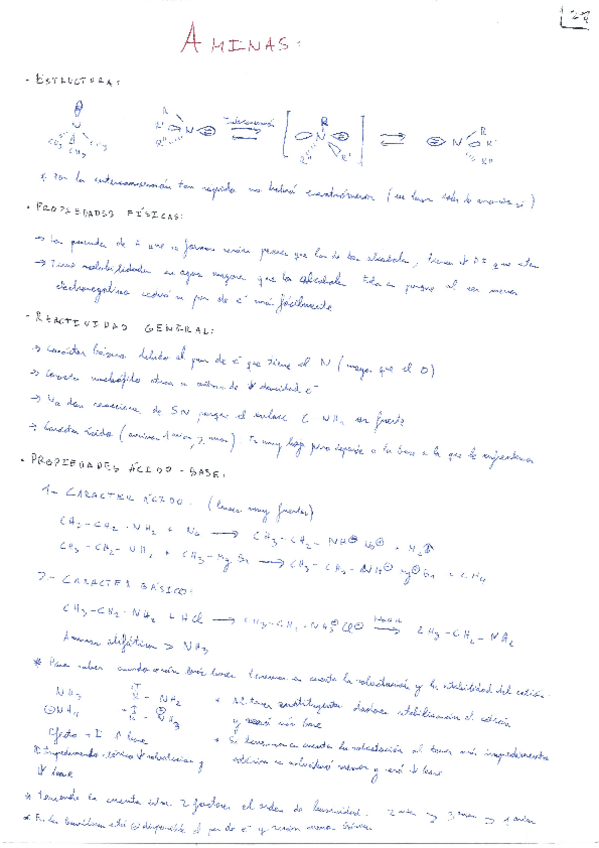 28
AMINAS:
- ESTRUCTURA:
R R' R'' N
CH3 CH3 CH3
* Por la interconversión tan rápida no habrá enantiómeros
- PROPIEDADES FÍSICAS:
→ Los puentes de H que se forman serán peores que los de los alcoholes, tienen
→ Tienen solubilidades en agua mayores que los alcoholes. Esto es porque al ser menos
electronegativo cederá su par de e⁻ más fácilmente
- REACTIVIDAD GENERAL:
→ Carácter básico debido al par de e⁻ que tiene el N (mayor que el O)
→ Carácter nucleófilo ataca a centros de ↓ densidad e⁻
→ No dan reacciones de SN porque el enlace C NH2 es fuerte
→ Carácter ácido (aminas 1arias, 2arias). Es muy bajo pero depende a la base a la que la enfrentemos
- PROPIEDADES ÁCIDO-BASE:
1- CARACTER ÁCIDO: (bases muy fuertes)
CH3-CH2-NH2 + Na → CH3-CH2-NH⊖ Na⊕ + H2↑
CH3-CH2-NH2 + CH3-Mg Br → CH3-CH2-NH⊖ Mg⊕Br + CH4
2- CARACTER BÁSICO:
CH3-CH2-NH2 + HCl → CH3-CH2-NH3⊕Cl⊖ → CH3-CH2-NH2
Aminas alifáticas > NH3
* Para saber cuando serán más bases tenemos en cuenta la solvatación y la estabilidad del catión.
NH3 R - NH2 * Al tener sustituyentes dadores estabilizarán el catión
⊕NH4 R - NH3 y será más base
Efecto +I ↑ base * Si tenemos en cuenta la solvatación al tener más impedimentos
* Impedimento estérico ↓ solvatación y estérico se solvatará menos y será ↓ base
↓ base
* Teniendo en cuenta estos 2 factores el orden de basicidad: 2arias > 3arias > 1arias
* En las bencílicas está disponible el par de e⁻ y serán menos básicas